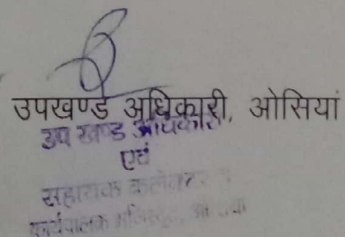 उपखण्ड अधिकारी, ओसियां
उप खण्ड अधिकारी
एवं
सहायक कलेक्टर
कार्यपालक